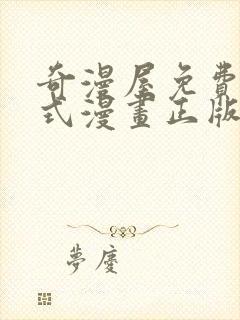 奇漫屋免費
式漫畫正版
夢慶